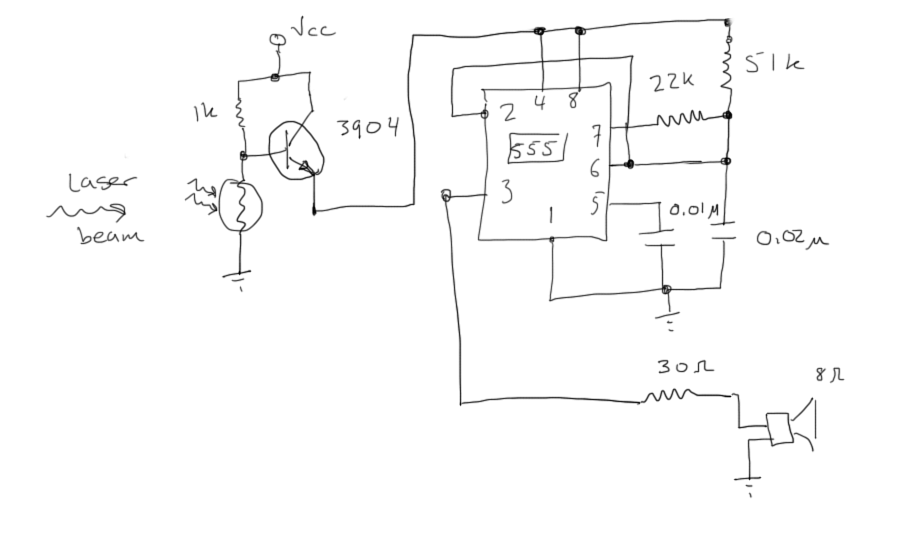 Vcc
1k
3904
Laser
beam
4 8
2
555
7
6
3
5
1
22k
51k
0.01µ
0.02µ
30Ω
8Ω